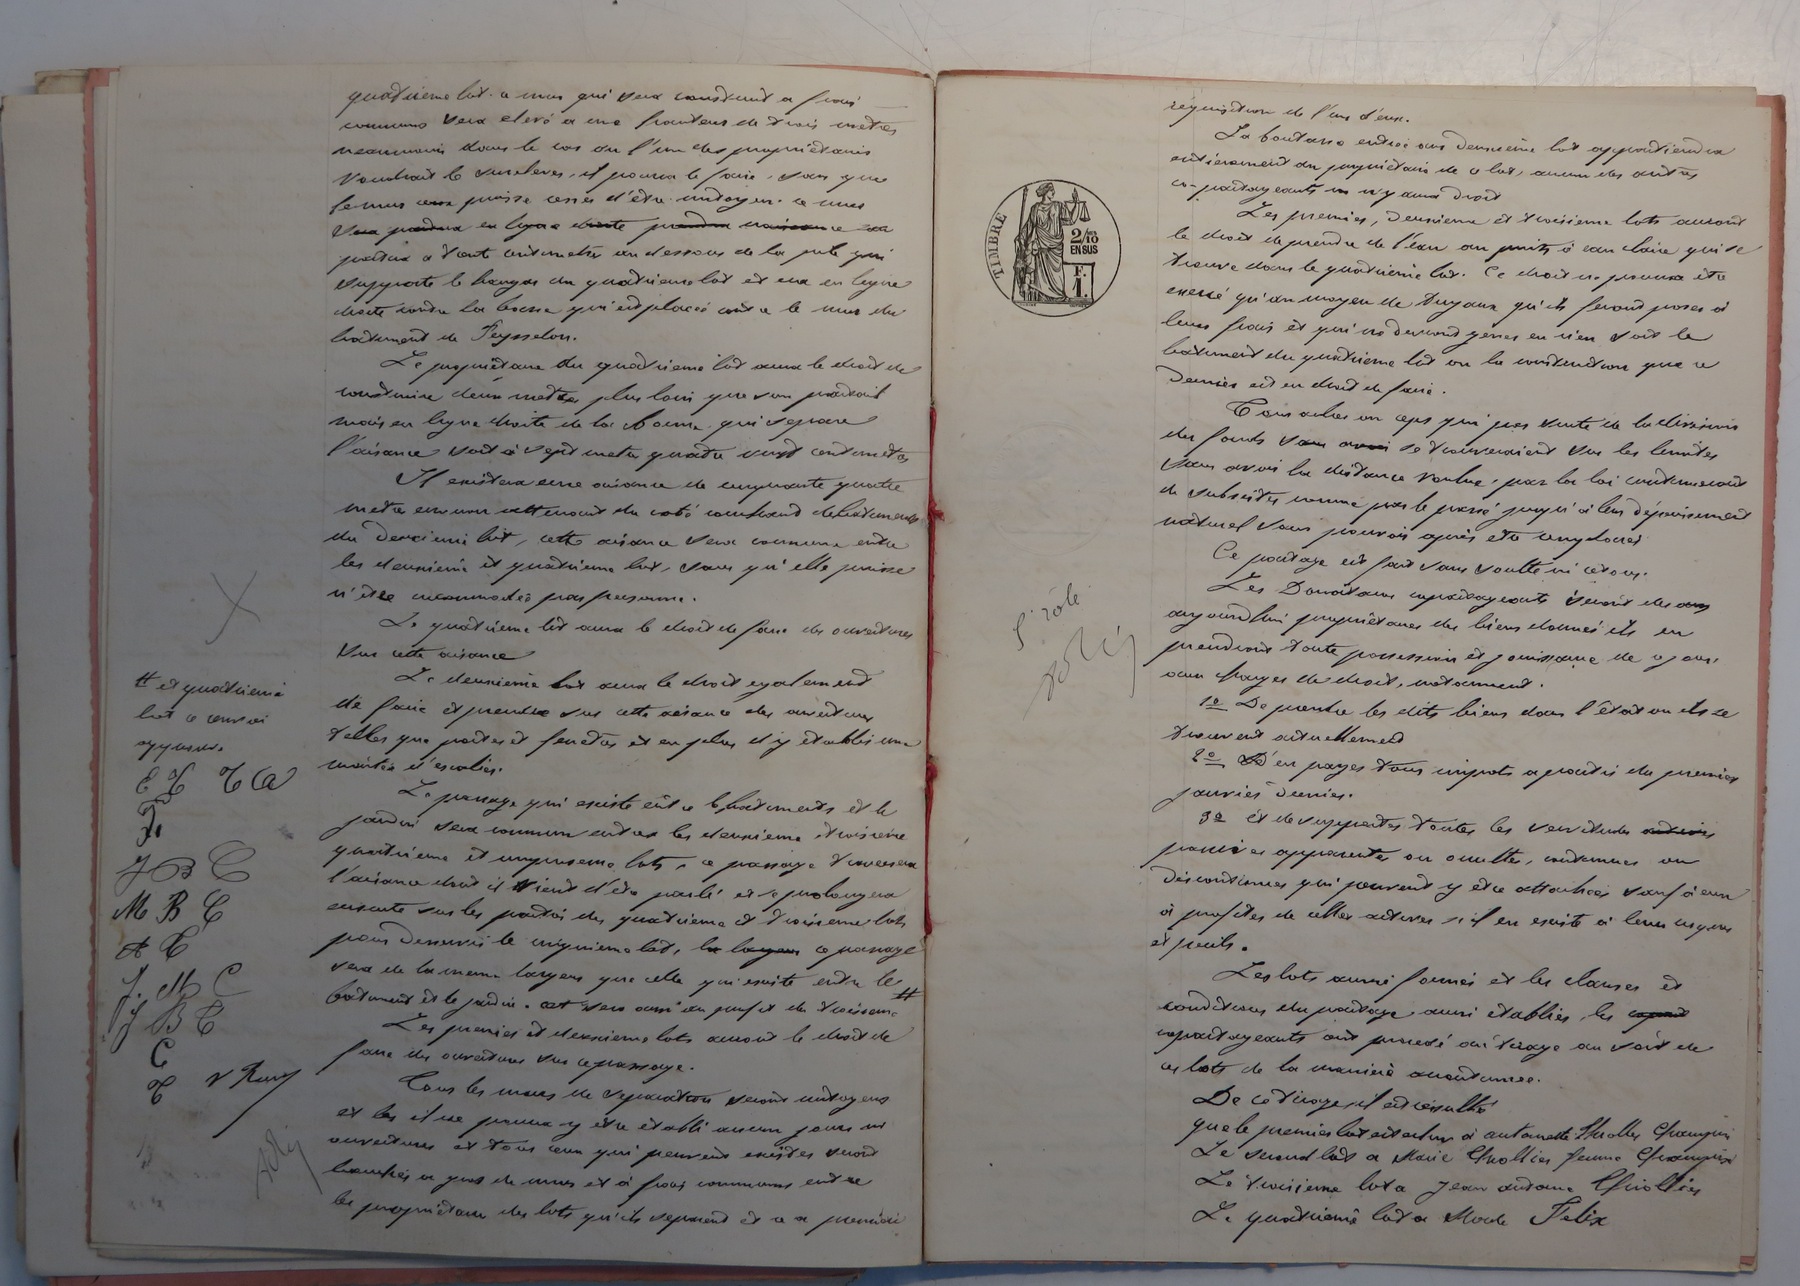 quatrième lot. ce mur qui sera construit a frais
communs sera elevé a une hauteur de trois metres
neanmoins dans le cas ou l'un des propriétaires
voudrait le surelever, il pourra le faire, sans que
le mur puisse cesser d'être mitoyen. ce mur
sera en ligne droite prendra naissance
partira a trente centimetres au dessous de la pile qui
supporte le hangar du quatrieme lot et ira en ligne
droite contre la borne qui est placée contre le mur du
batiment de Peysselon.
Le propriétaire du quatrieme lot aura le droit de
construire deux metres plus loin que son
mais en ligne droite de la borne qui separe
l'aisance soit à sept metres quatre vingt centimetres
Il existera une aisance de cinquante quatre
metres environ attenant du coté couchant de batiments
du deuxieme lot, cette aisance sera commune entre
les deuxième et quatrieme lot, sans qu'elle puisse
n'être incommodée par personne.
Le quatrieme lot aura le droit de faire des ouvertures
sur cette aisance
Le deuxieme lot aura le droit egalement
de faire et prendre sur cette aisance des ouvertures
telles que portes et fenetres et en plus d'y établir une
montée d'escalier.
Le passage qui existe entre le batiments et le
jardin sera commun entre les deuxieme troisieme
quatrieme et cinquieme lots, ce passage traversera
l'aisance dont il vient d'être parlé et se prolongera
ensuite sur les parties des quatrieme et troisieme lots
pour desservir le cinquieme lot, la largeur ce passage
sera de la meme largeur que celle qui existe entre le
batiment et le jardin. est sera aussi au profit du troisieme #
Les premier et deuxieme lots auront le droit de
faire des ouvertures sur ce passage.
Tous les murs de separation seront mitoyens
et les il ne pourra y etre établi aucun jours ni
ouvertures et tous ceux qui peuvent exister seront
bouchés en gros de murs et à frais communs entre
les proprietaires des lots qu'ils separent et a a premiere
# et quatrieme
lot ce renvoi
approuvé.
E T T A
J B C
M B C
A C
J. M C
J B C
C
C
requisition de l'un d'eux.
La boutasse entrée au deuxieme lot appartiendra
entierement au proprietaire de ce lot, aucun des autres
co-partageants n'y aura droit
Les premier, deuxieme et troisieme lots auront
le droit de prendre de l'eau au puits à eau claire qui se
trouve dans le quatrième lot. Ce droit ne pourra etre
exercé qu'au moyen de tuyaux qu'ils feront poser à
leurs frais et qui ne devront gener en rien soit le
batiment du quatrieme lot ou la construction que ce
dernier est en droit de faire.
Tous arbres ou ceps qui par suite de la division
des fonds sans avoir se trouveraient sur les limites
sans avoir la distance voulue par la loi continueront
de subsister comme par le passé jusqu'à leur dépérissement
naturel sans pouvoir après etre remplacés
Ce partage est fait sans soulte ni retour.
Les Donataires copartageants seront des
aujourdhui proprietaires des biens donnés ils en
prendront toute possession et jouissance de ce jour.
aux charges de droit, notamment.
1o De prendre les dits biens dans l'état ou ils se
trouvent actuellement
2o D'en payer tous impots a partir du premier
janvier dernier.
3o et de supporter toutes les servitudes
passives apparentes ou occultes, continues ou
discontinues qui peuvent y etre attachées sauf à eux
à profiter de celles actives s'il en existe à leurs risques
et perils.
Les lots ainsi formés et les clauses et
conditions du partage ainsi établies, les
copartageants ont procedé au tirage au sort de
ces lots de la manière accoutumée.
De ce tirage il est résulté
que le premier lot est echu à antoinette Chollier Champin
Le second lot a Marie Chollier femme Champin
Le troisieme lot a Jean antoine Chollier
Le quatrieme lot a Felix
5e rôle
TIMBRE
2/10
EN SUS
F.
1.